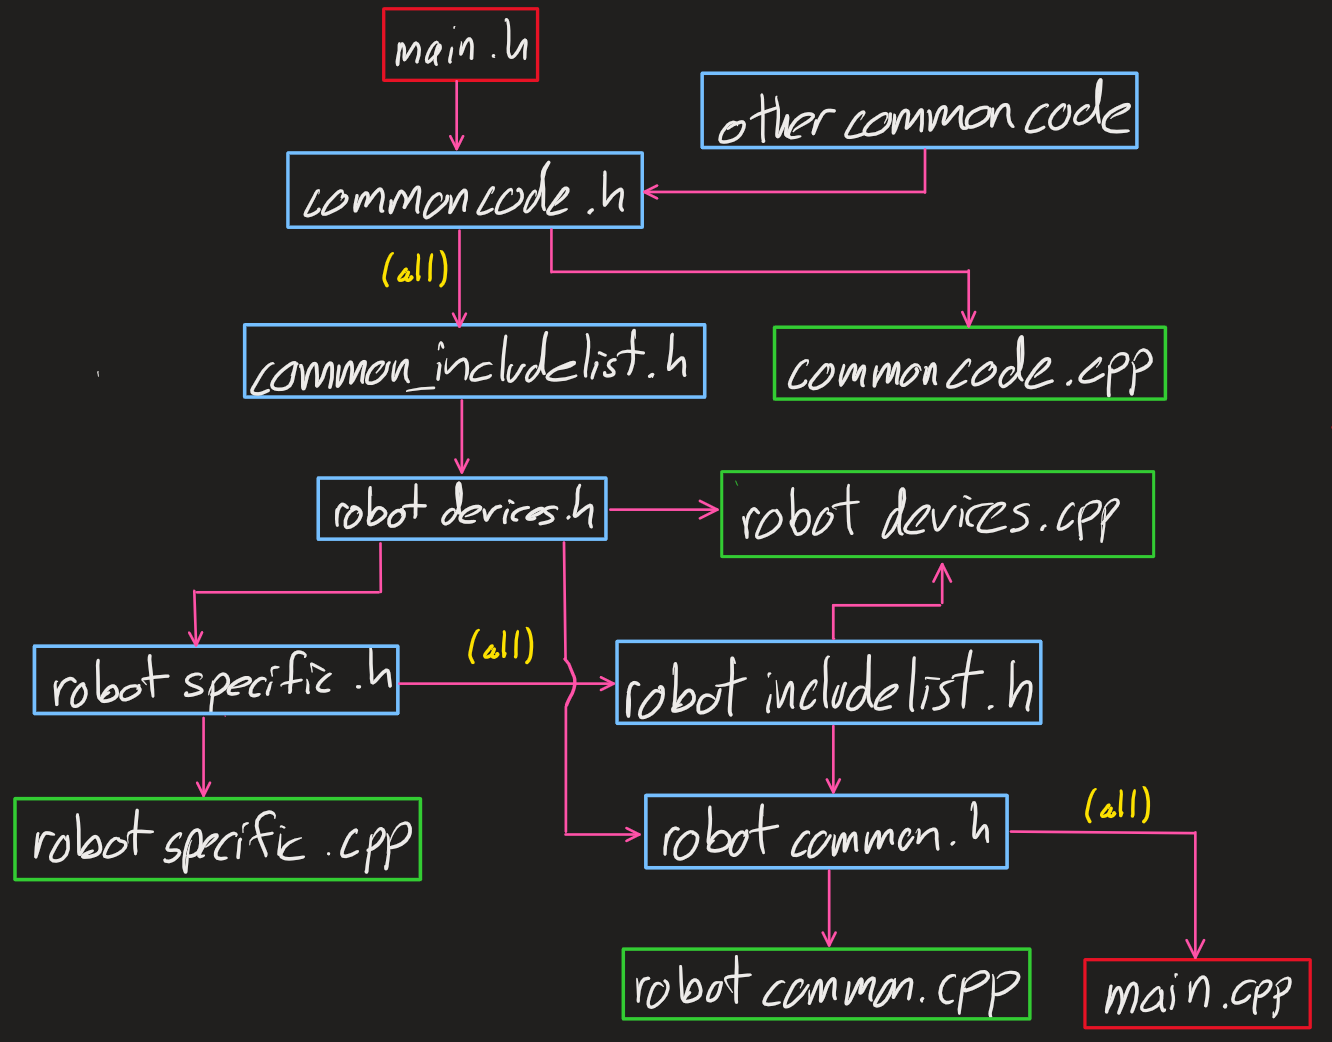 main.h
other common code
common code.h
(all)
common_includelist.h
common code.cpp
robot devices.h
robot devices.cpp
(all)
robot specific.h
robot includelist.h
(all)
robot specific.cpp
robot common.h
robot common.cpp
main.cpp